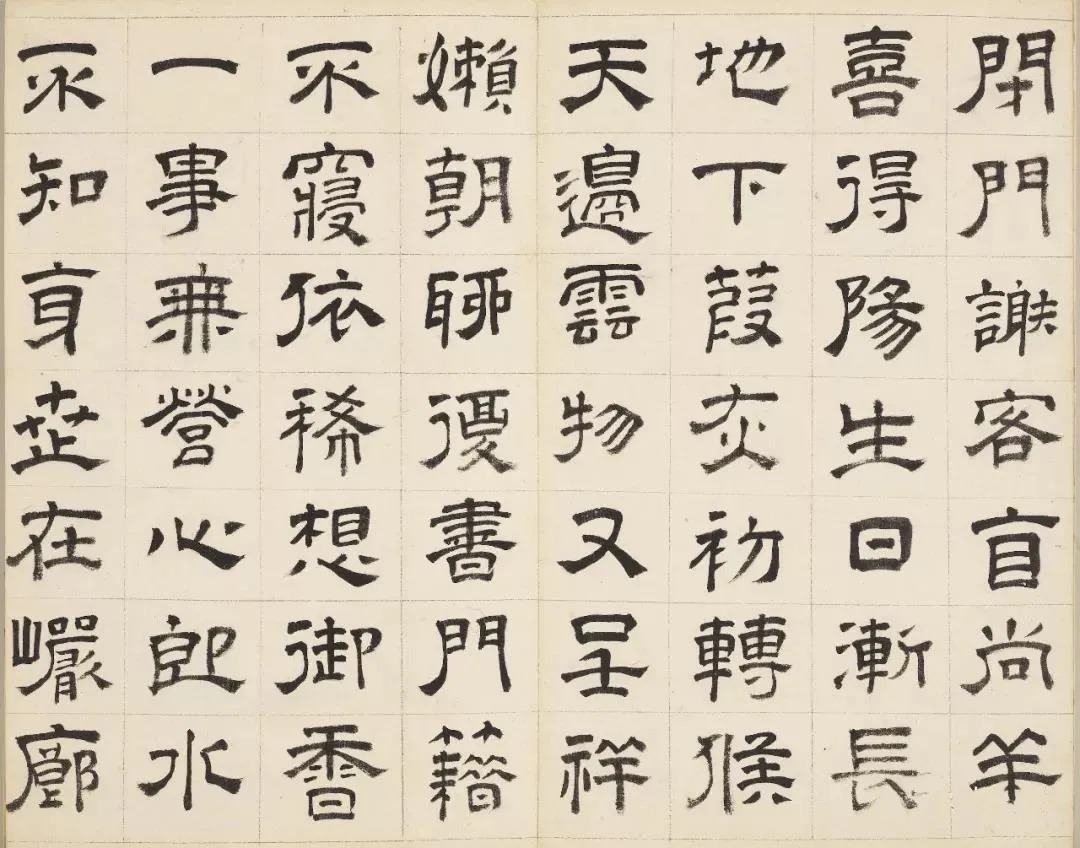 閉門謝客盲尚羊
喜得陽生日漸長
地下葭灰初轉候
天邊雲物又呈祥
嬾朝聊復書門籍
不寢依稀想御香
一事無營心即水
不知身在巖廊